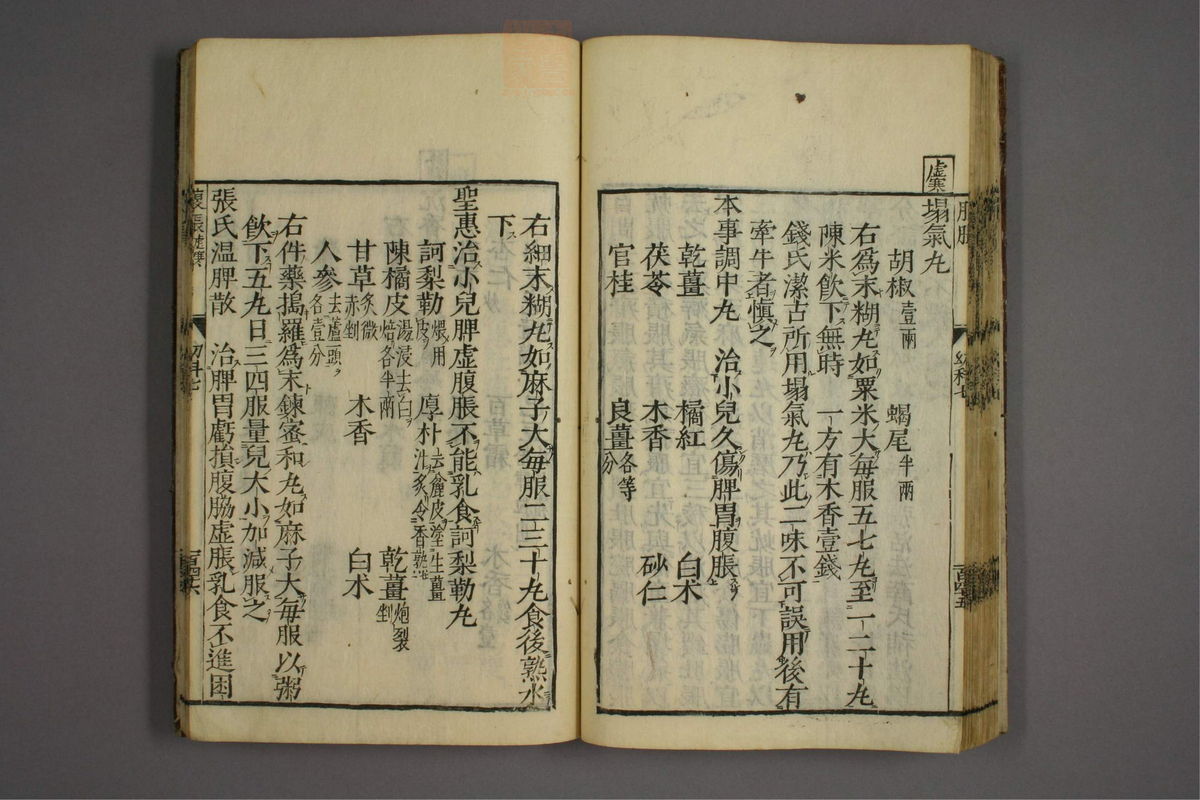 虛寒
塌氣丸
胡椒壹兩　蝎尾半兩
右爲末糊丸如粟米大每服五七丸至一二十丸
陳米飮下無時　一方有木香壹錢
錢氏潔古所用塌氣丸乃此二味不可誤用後有
牽牛者愼之
本事調中丸　治小兒久傷脾胃腹脹
乾薑　橘紅　白朮
茯苓　木香　砂仁
官桂　良薑各等分
右細末糊丸如麻子大每服二三十丸食後熟水
下
聖惠治小兒脾虛腹脹不能乳食訶梨勒丸
訶梨勒煨用皮　厚朴去麄皮塗生薑汁炙令香熟　乾薑炮裂剉
陳橘皮湯浸去白焙各半兩
甘草炙微赤剉　木香　白朮
人參去蘆頭各壹分
右件藥搗羅爲末鍊蜜和丸如麻子大每服以粥
飮下五丸日三四服量兒大小加減服之
張氏温脾散　治脾胃虧損腹脇虛脹乳食不進困
百四十六